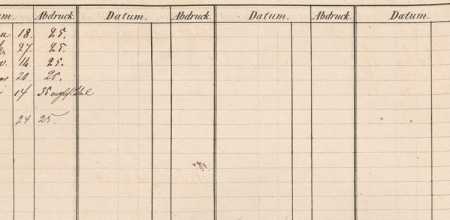 um. Abdruck. Datum. Abdruck. Datum. Abdruck. Datum.
18. 25.
27. 25.
14 25.
20 25.
14 35
24 25.